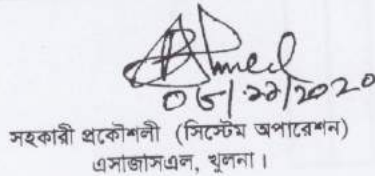 Ahmed
সহকারী প্রকৌশলী (সিস্টেম অপারেশন)
এসজিসিএল, খুলনা।